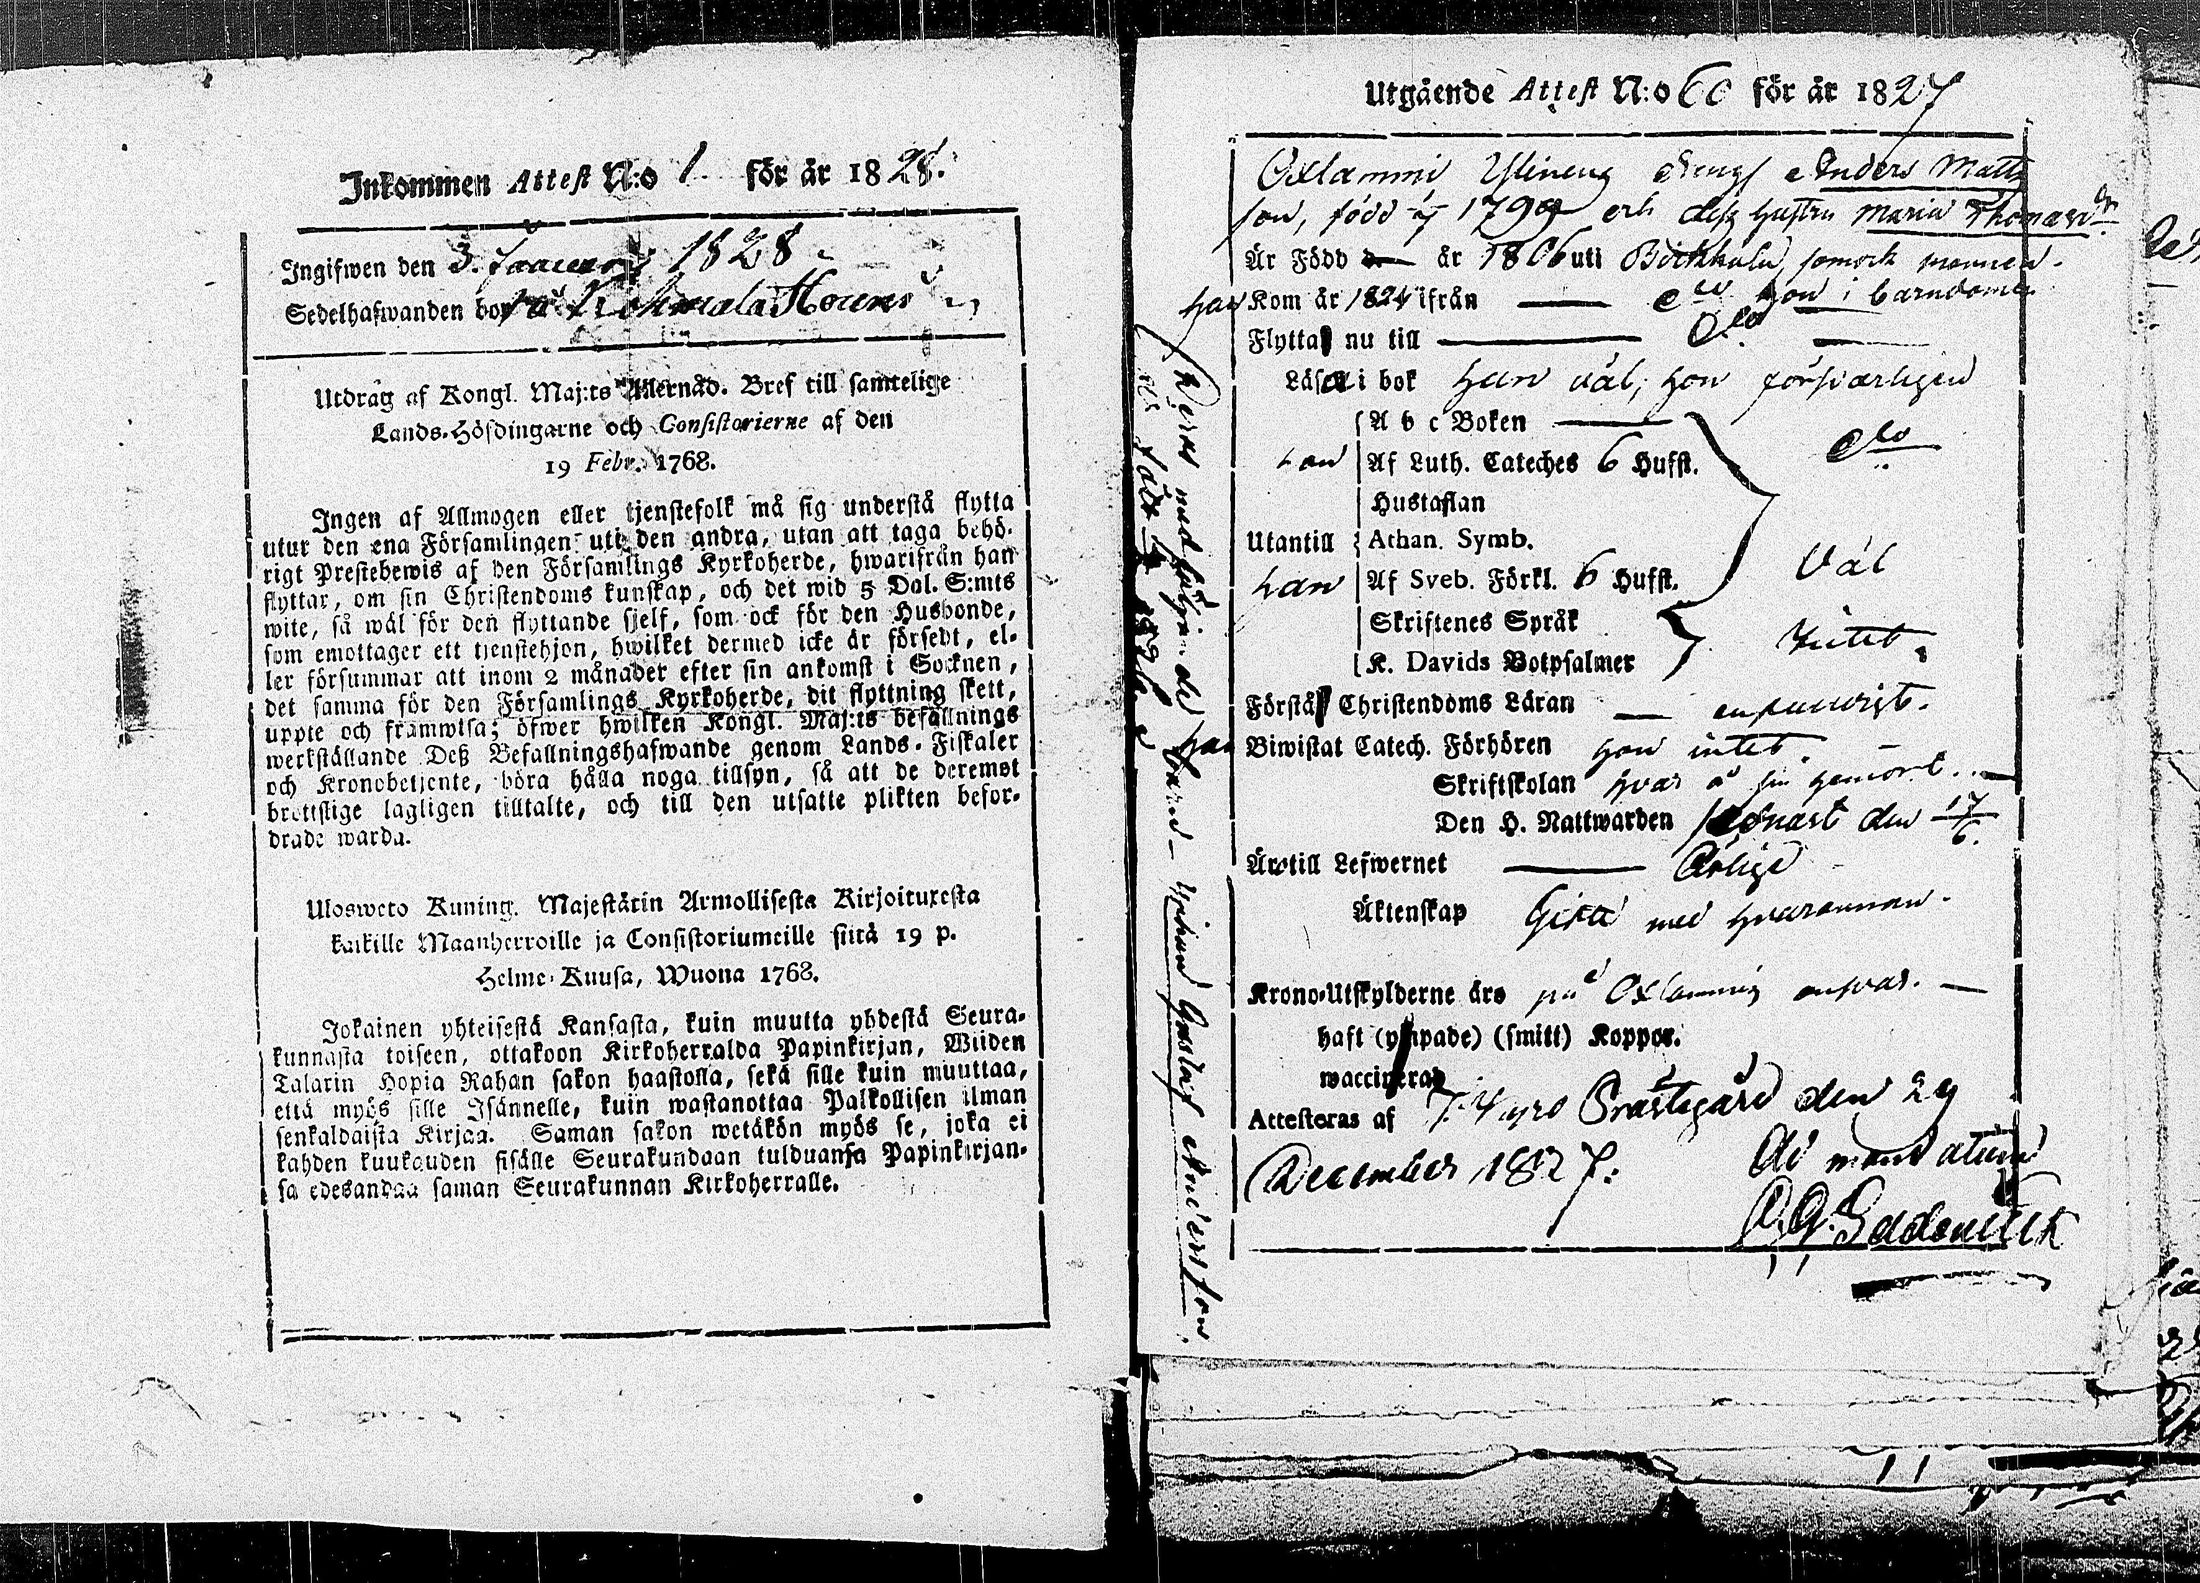 Inkommen Attest N:o 1. för år 1828.
Ingifwen den 3. Januari 1828
Sedelhafwanden bor på
Utdrag af Kongl. Maj:ts Allernåd. Bref till samtelige
Lands-Höfdingarne och Consistorierne af den
19 Febr. 1768.
Ingen af Allmogen eller tjenstefolk må sig understå flytta
utur den ena Församlingen uti den andra, utan att taga behö-
rigt Prestebewis af den Församlings Kyrkoherde, hwarifrån han
flyttar, om sin Christendoms kunskap, och det wid 5 Dal. S:mts
wite, så wäl för den flyttande sjelf, som ock för den Husbonde,
som emottager ett tjenstehjon, hwilket dermed icke är försedt, el-
ler försummar att inom 2 månader efter sin ankomst i Socknen,
det samma för den Församlings Kyrkoherde, dit flyttning skett,
uppte och framwisa; öfwer hwilken Kongl. Maj:ts befallnings
werkställande Deß Befallningshafwande genom Lands-Fiskaler
och Kronobetjente, böra hålla noga tillsyn, så att de deremot
brottslige lagligen tilltalte, och till den utsatte plikten befor-
drade warda.
Ulosweto Kuning. Majestätin Armollisesta Kirjoituxesta
kaikille Maanherroille ja Consistoriumeille siitä 19 p.
Helme-Kuusa, Wuona 1768.
Jokainen yhteisestä Kansasta, kuin muutta yhdestä Seura-
kunnasta toiseen, ottakoon Kirkoherralda Papinkirjan, Wiiden
Talarin Hopia Rahan sakon haastolla, sekä sille kuin muuttaa,
että myös sille Isännelle, kuin wastanottaa Palkollisen ilman
senkaldaista Kirjaa. Saman sakon wetäkön myös se, joka ei
kahden kuukauden sisälle Seurakundaan tulduansa Papinkirjan-
sa edesandaa saman Seurakunnan Kirkoherralle.
Utgående Attest N:o 60 för år 1827
Oxlammi Anders Matts
son, född 1799 och deß hustru Maria Thomasdr
Är Född år 1806 uti mannen.
han Kom år 1824 ifrån hon i barndomen
Flytta nu till do
Läsa i bok han väl, hon försvarligen
A b c Boken
han Af Luth. Cateches 6 Hufst. do
Hustaflan
Utantill Athan. Symb.
han Af Sveb. Förkl. 6 Hufst. Väl
Skriftenes Språk
K. Davids Botpsalmer Intet
Förstå Christendoms Läran
Biwistat Catech. Förhören hon intet
Skriftskolan hvar å sin hemort.
Den H. Nattwarden senast den 17/6.
Äro till Lefwernet Ärlige
Äktenskap Gifte med hvarannan.
Krono-Utskylderne äro på Oxlammis ansvar.
haft (ympade) (smitt) Koppor.
waccinerad
Attesteras af Prästegård den 29
December 1827. Ad mandatum
Deras medföljande barn Johan Gustaf Andersson
är född